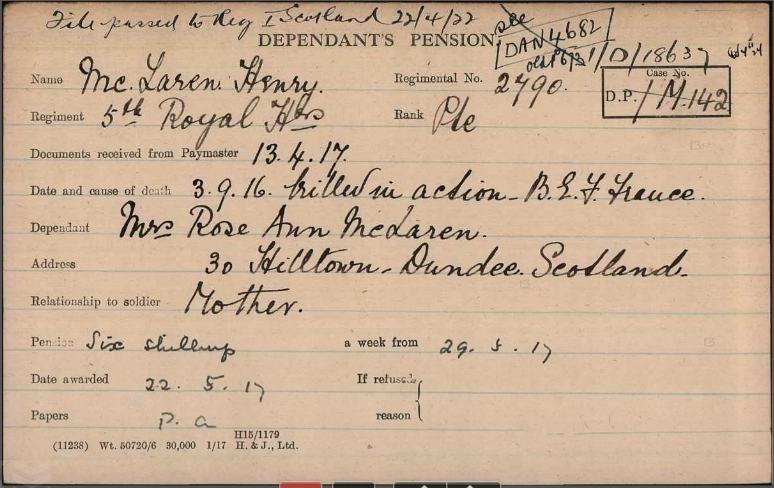 File passed to Reg I Scotland 22/4/22
see
DEPENDANT'S PENSION
DAN 4682
1/D/18637
Name Mc. Laren. Henry.
Regimental No. 2790.
Case No.
D.P. / M. 142
Regiment 5th Royal Hrs
Rank Pte
Documents received from Paymaster 13.4.17.
Date and cause of death 3.9.16. Killed in action - B.E.F. France.
Dependant Mrs Rose Ann McLaren.
Address 30 Hilltown - Dundee. Scotland.
Relationship to soldier Mother.
Pension Six shillings a week from 29.5.17
Date awarded 22.5.17 If refused,
Papers P. a reason
H15/1179
(11238) Wt. 50720/6 30,000 1/17 H. & J., Ltd.